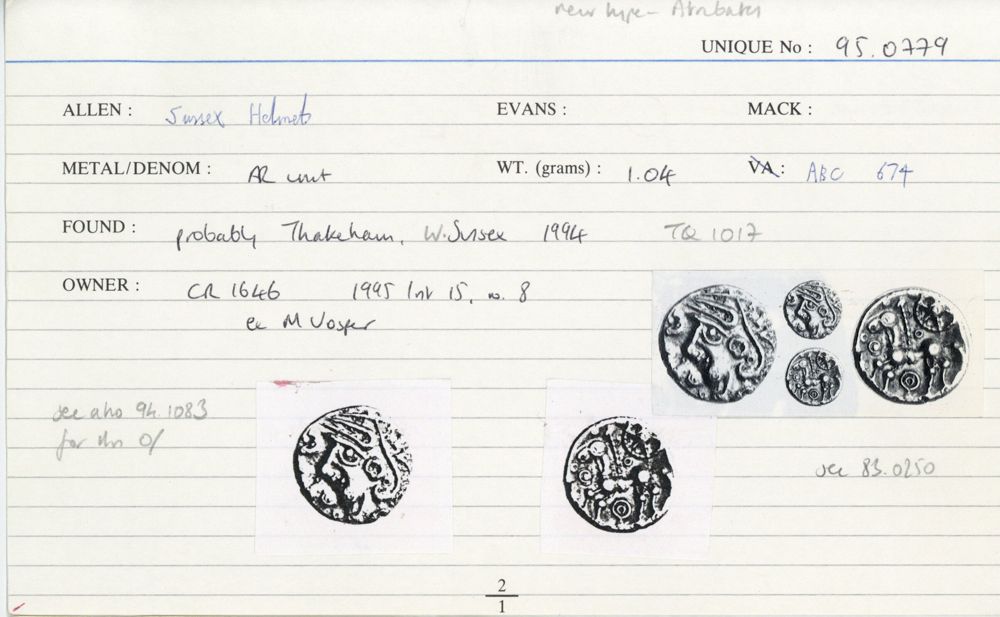 new type - Atrebates
UNIQUE No : 95.0779
ALLEN : Sussex Helmets EVANS : MACK :
METAL/DENOM : AR unit WT. (grams) : 1.04 VA : ABC 674
FOUND : probably Thakeham, W. Sussex 1994 TQ 1017
OWNER : CR 1646 1995 Inv 15, no. 8
ex M Vosper
see also 94.1083
for this O/
see 83.0250
2
1